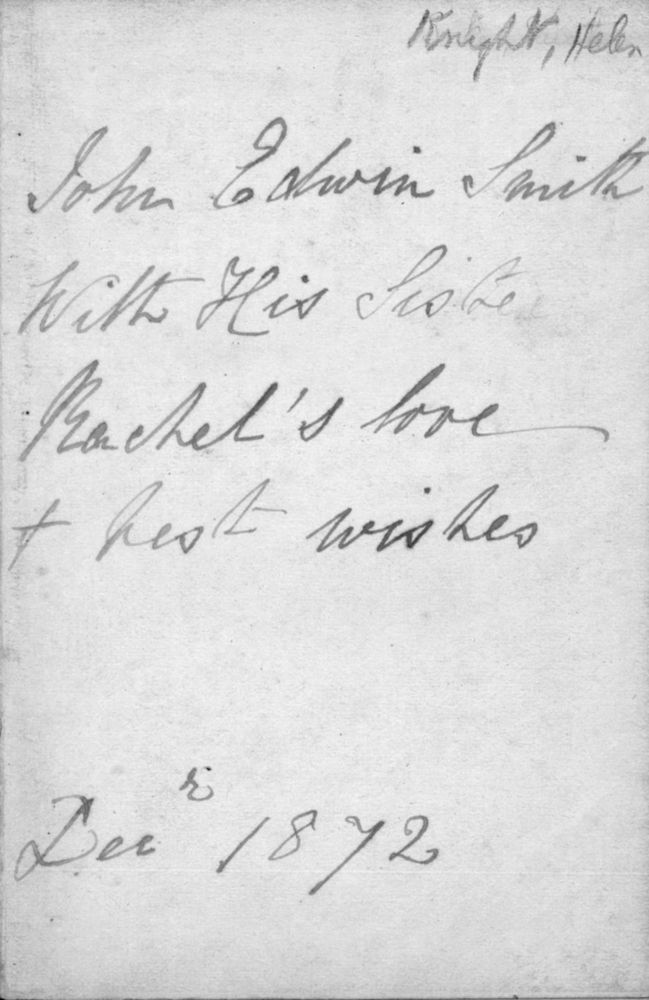 Knight, Helen
John Edwin Smith
With His Sister
Rachel's love
+ best wishes
Decr 1872